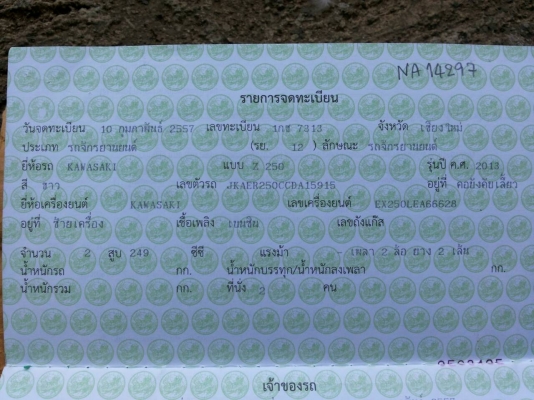 NA14297
รายการจดทะเบียน
วันจดทะเบียน 10 กุมภาพันธ์ 2557 เลขทะเบียน 1กช 7313 จังหวัด เชียงใหม่
ประเภท รถจักรยานยนต์ (รย. 12 ) ลักษณะ รถจักรยานยนต์
ยี่ห้อรถ KAWASAKI แบบ Z 250 รุ่นปี ค.ศ. 2013
สี ขาว เลขตัวรถ JKAER250CCDA15915 อยู่ที่ คอยังคับเลี้ยว
ยี่ห้อเครื่องยนต์ KAWASAKI เลขเครื่องยนต์ EX250LEA66628
อยู่ที่ ซ้ายเครื่อง เชื้อเพลิง เบนซิน เลขถังแก๊ส
จำนวน 2 สูบ 249 ซีซี แรงม้า - เพลา 2 ล้อ ยาง 2 เส้น
น้ำหนักรถ กก. น้ำหนักบรรทุก/น้ำหนักลงเพลา กก.
น้ำหนักรวม กก. ที่นั่ง 2 คน
เจ้าของรถ